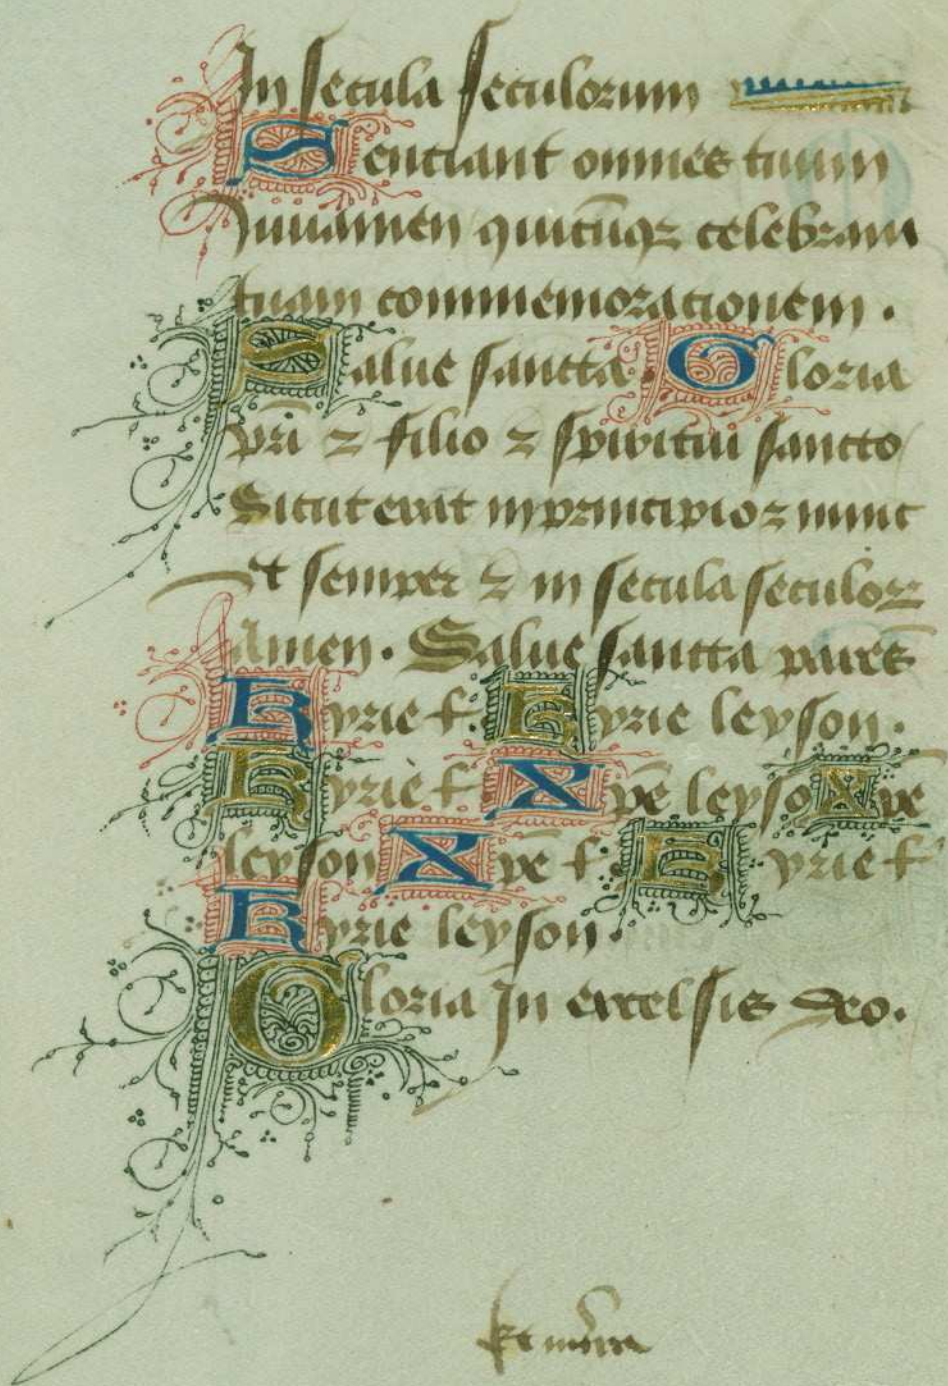 In secula seculorum
Senciant omnes tuum
Iuuamen quicūqꝫ celebrant
tuam commemoracionem .
Salue sancta Gloria
pr̄i ⁊ filio ⁊ spiritui sancto
Sicut erat in principio ⁊ nunc
Et semper ⁊ in secula seculoꝝ
Amen . Salue sancta parēs
Kyrie f . Kyrie leyson .
Kyrie f Xpē leyso Xpē
leyson Xpē f . Kyrie f
Kyrie leyson .
Gloria In excelsis deo .
Et in terra